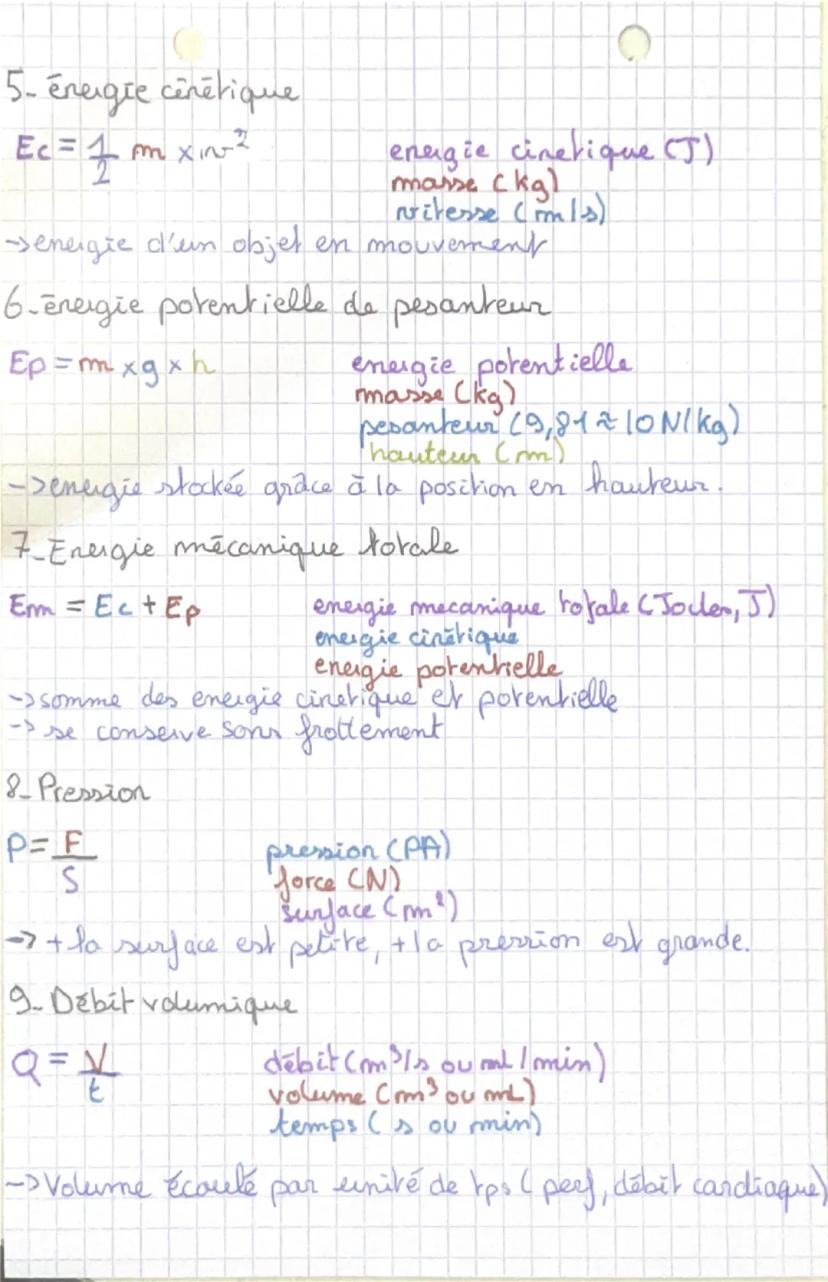 5- énergie cénétique
Ec = 1/2 m x v²
energie cinetique (J)
masse (kg)
vitesse (m/s)
->energie d'un objet en mouvement
6-énergie potentielle de pesanteur
Ep = m x g x h
energie potentielle
masse (kg)
pesanteur (9,81 ≈ 10 N/kg)
hauteur (m)
->energie stockée grâce à la position en hauteur.
7-Energie mécanique totale
Em = Ec + Ep
energie mecanique totale (Joules, J)
energie cinétique
energie potentielle
->somme des energie cinetique et potentielle
-> se conserve sans frottement
8-Pression
P = F/S
pression (PA)
force (N)
surface (m²)
-> + la surface est petite, + la pression est grande.
9- Débit volumique
Q = V/t
débit (m³/s ou mL/min)
volume (m³ ou mL)
temps ( s ou min)
->Volume écoulé par unité de tps ( perf, débit cardiaque)